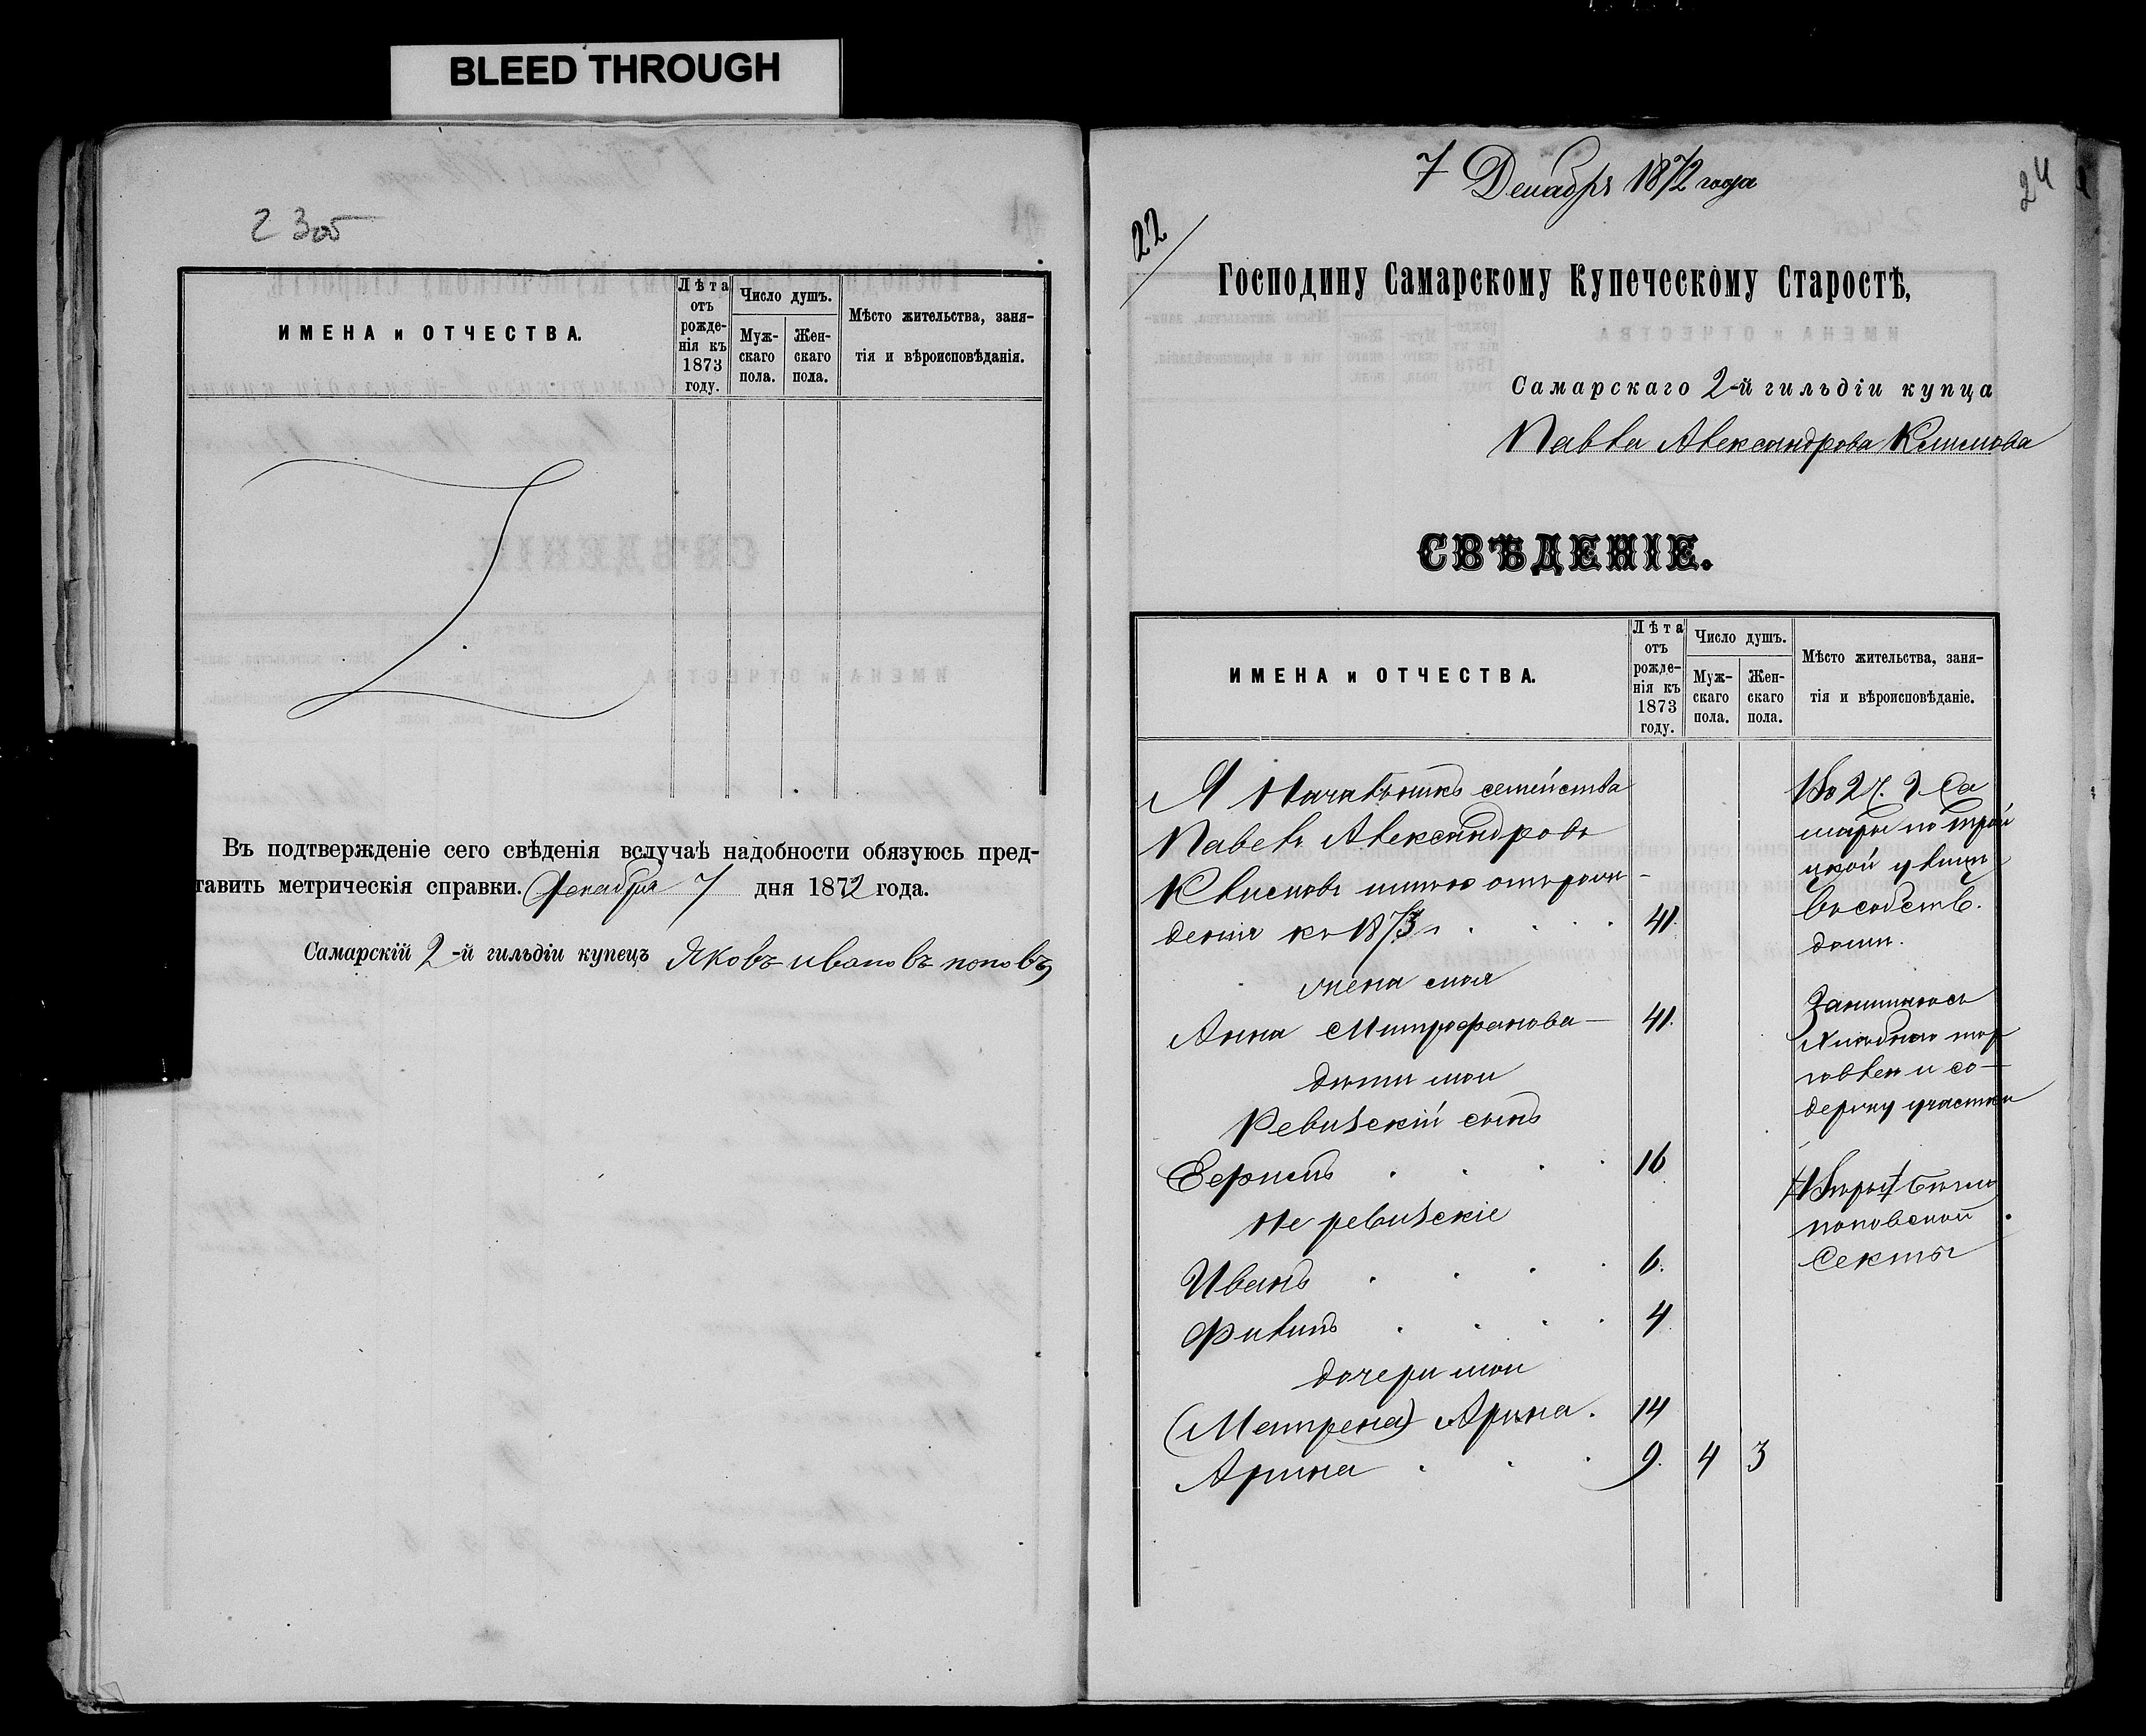 BLEED THROUGH
2 3об
ИМЕНА и ОТЧЕСТВА.
Лѣта отъ рожденія къ 1873 году.
Число душъ.
Мужскаго пола.
Женскаго пола.
Мѣсто жительства, заня-
тія и вѣроисповѣданія.
Въ подтвержденіе сего свѣденія вслучаѣ надобности обязуюсь пред-
тавить метрическія справки. Декабря 7 дня 1872 года.
Самарскій 2-й гильдіи купецъ Яковъ ивановъ поповъ
7 Декабря 1872 года
24
22
Господину Самарскому Купеческому Старостѣ,
Самарскаго 2-й гильдіи купца
Павла Александрова
СВѢДЕНІЕ.
ИМЕНА и ОТЧЕСТВА.
Лѣта отъ рожденія къ 1873 году.
Число душъ.
Мужскаго пола.
Женскаго пола.
Мѣсто жительства, заня-
тія и вѣроисповѣданіе.
Я Начальникъ семейства
Павелъ Александровъ
отъ рож-
денія къ 1873 г. 41.
жена моя
Анна Митрофанова 41.
дѣти мои
Ревизскій сынъ
16
Не ревизскіе
Иванъ 6.
Филипъ 4
дочери мои
(Матрена) Арина. 14
Арина 9. 4 3
Во 2 ч. г Са
мары по Трои
цкой улицѣ
въ собств.
домѣ.
Занимаюсь
хлѣбною тор
говлею и со-
держу участки
Вѣры Бѣгло
поповской
Секты